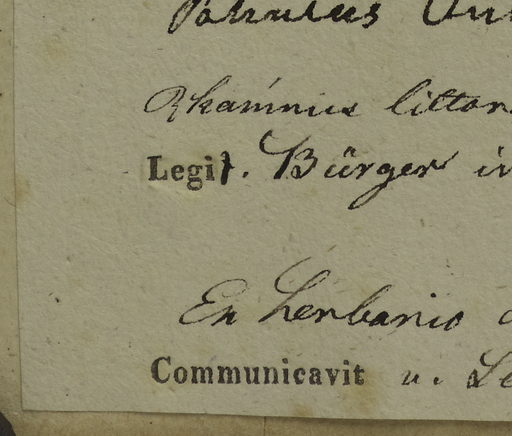 Paliurus
Rhamnus littor
Legit. Bürger in
Ex herbario
Communicavit u. Le